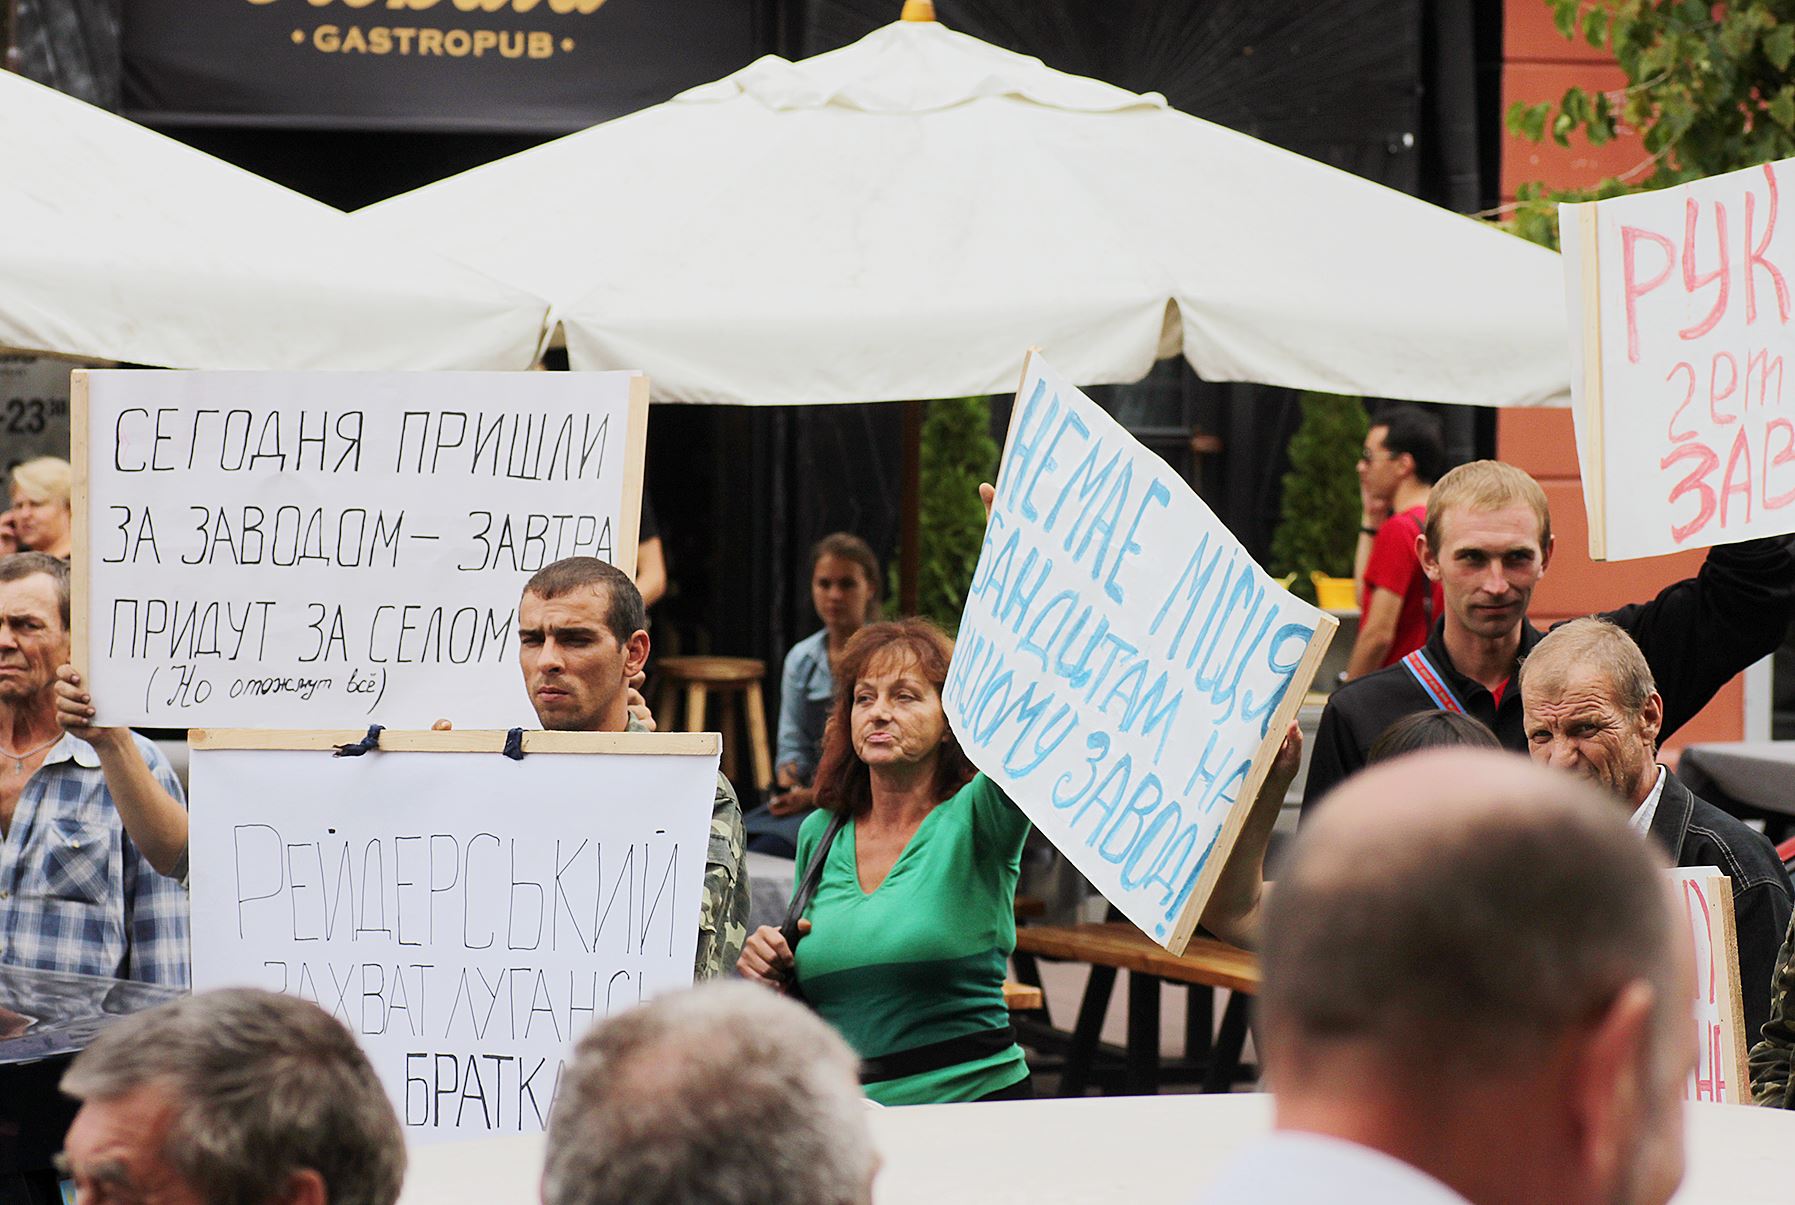 • GASTROPUB •
-23³⁰
СЕГОДНЯ ПРИШЛИ
ЗА ЗАВОДОМ – ЗАВТРА
ПРИДУТ ЗА СЕЛОМ
(Но отожмут всё)
РЕЙДЕРСЬКИЙ
ЗАХВАТ ЛУГАНСЬ
БРАТКА
НЕМАЄ МІСЦЯ
БАНДИТАМ НА
НАШОМУ ЗАВОДІ!
РУК
гет
ЗАВ
НЕ